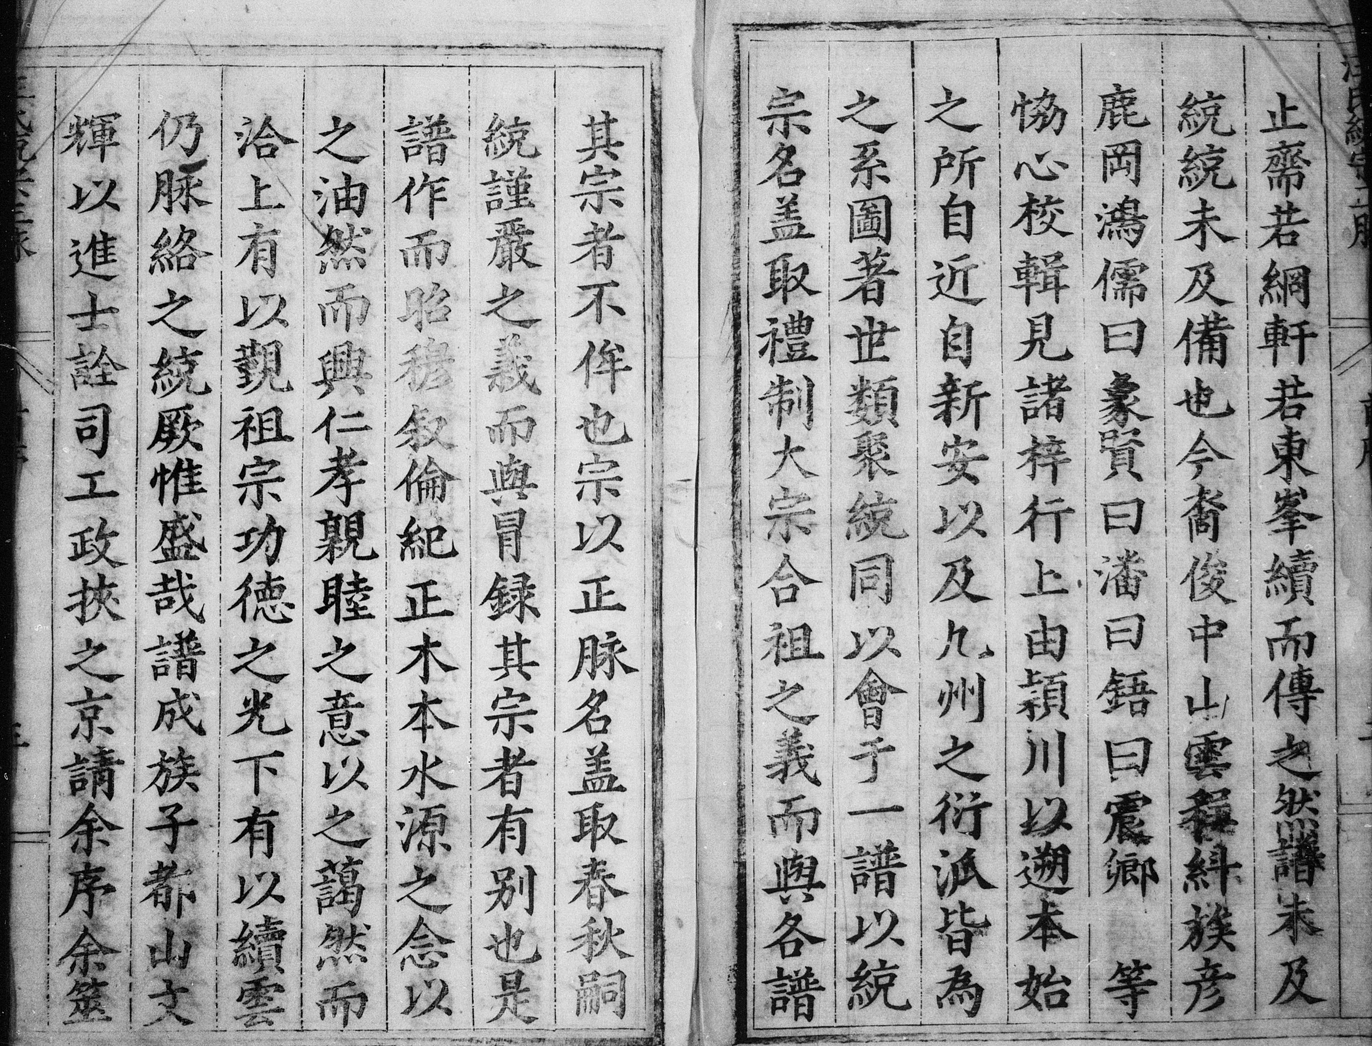 止齋若綱軒若東峯續而傳之然譜未及
統統未及備也今裔俊中山雲程紏族彦
鹿岡鴻儒曰彖賢曰潘曰鋙曰震卿 等
恊心校輯見諸梓行上由潁川以遡本始
之所自近自新安以及九州之衍派皆為
之系圖著世類聚統同以會于一譜以統
宗名盖取禮制大宗合祖之義而與各譜
其宗者不侔也宗以正脉名盖取春秋嗣
統謹嚴之義而與冒録其宗者有别也是
譜作而昭穆叙倫紀正木本水源之念以
之油然而興仁孝親睦之意以之藹然而
洽上有以覲祖宗功德之光下有以續雲
仍脉絡之統厥惟盛哉譜成族子都山文
輝以進士詮司工政挾之京請余序余筮